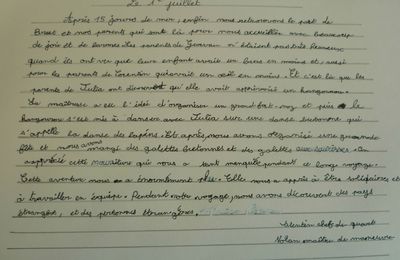 Le 1er juillet
Après 15 jours de mer, enfin nous retrouvons le port de
Brest et nos parents qui sont là pour nous accueillir avec beaucoup
de joie et de larmes. Les parents de n'étaient pas très heureux
quand ils ont vu que leur enfant avait un bras en moins et aussi
pour les parents de Corentin qui avait un œil en moins. Et c'est là que les
parents de Julia ont découvert qu'elle avait apprivoisé un kangourou.
La maîtresse a eu l'idée d'organiser un grand fest-noz et puis le
kangourou s'est mis à danser avec Julia sur une danse bretonne qui
s'appelle la danse des lapins. Et après, nous avons organisé une grande
fête et nous avons mangé des galettes bretonnes et des galettes aux On
a apprécié cette nourriture qui nous a tant manquée pendant ce long voyage.
Cette aventure nous a énormément plu. Elle nous a appris à être solidaires et
à travailler en équipe. Pendant notre voyage, nous avons découvert des pays
étrangers, et des personnes étrangères.
Quentin chef de quart
Nolan maître de manœuvre